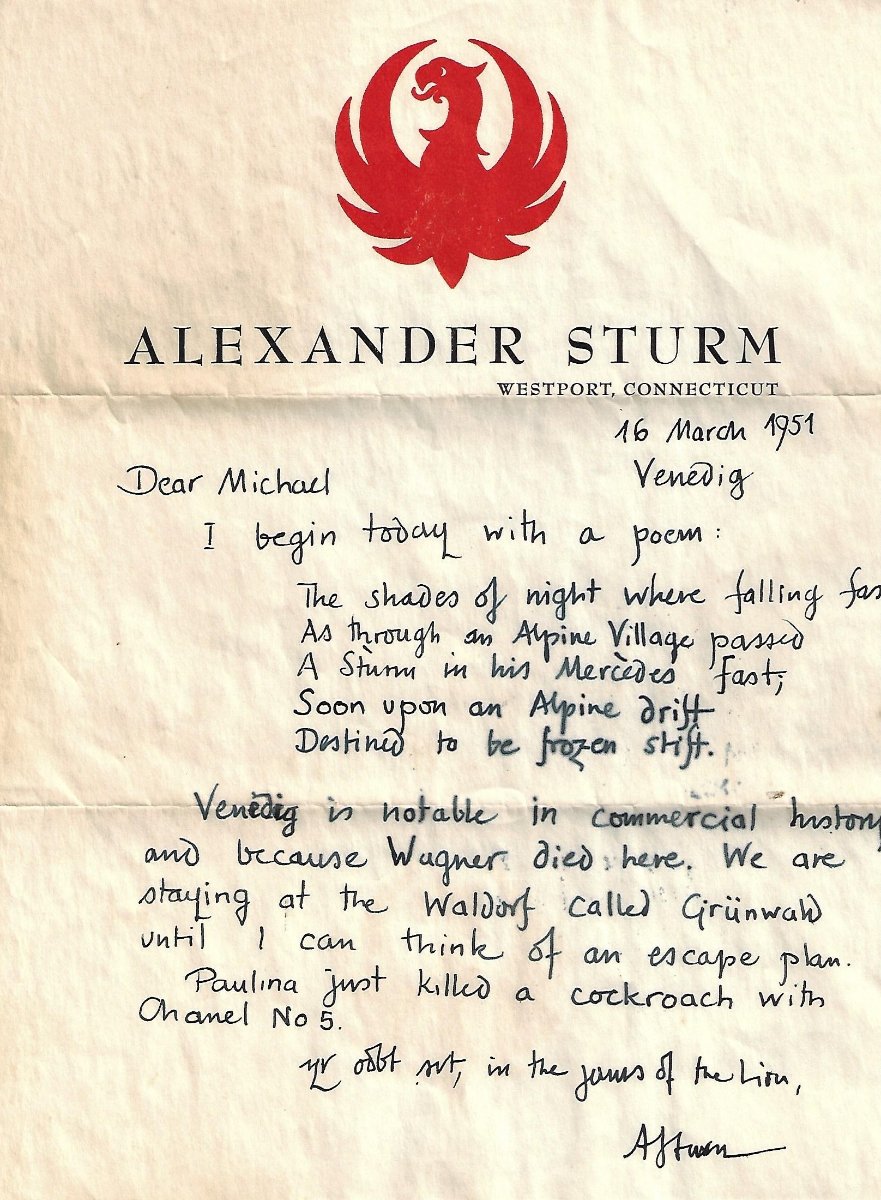 ALEXANDER STURM
WESTPORT, CONNECTICUT
16 March 1951
Dear Michael
Venedig
I begin today with a poem:
The shades of night where falling fas
As through an Alpine Village passed
A Sturm in his Mercedes fast;
Soon upon an Alpine drift
Destined to be frozen stift.
Venedig is notable in commercial history
and because Wagner died here. We are
staying at the Waldorf called Grünwald
until I can think of an escape plan.
Paulina just killed a cockroach with
Chanel No 5.
yr obt svt, in the jaws of the Lion,
ASturm